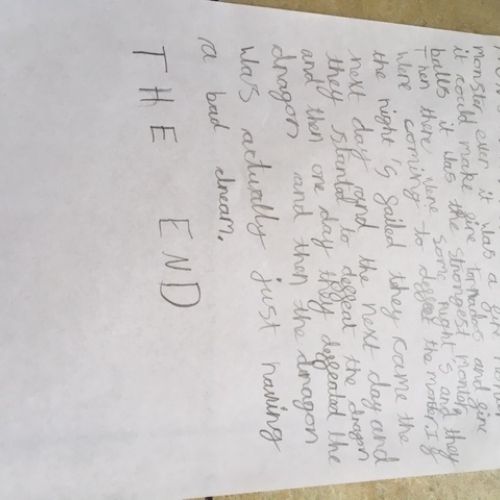 monster ever it was a
it could make fire tornados and fire
balls it was the strongest monster
Then there were some night's and they
were coming to deffeat the monster, If
the night's failed they came the
next day and the next day and
they started to deffeat the dragon
and then one day they deffeated the
dragon and then the dragon
was actually just having
a bad dream.
THE END